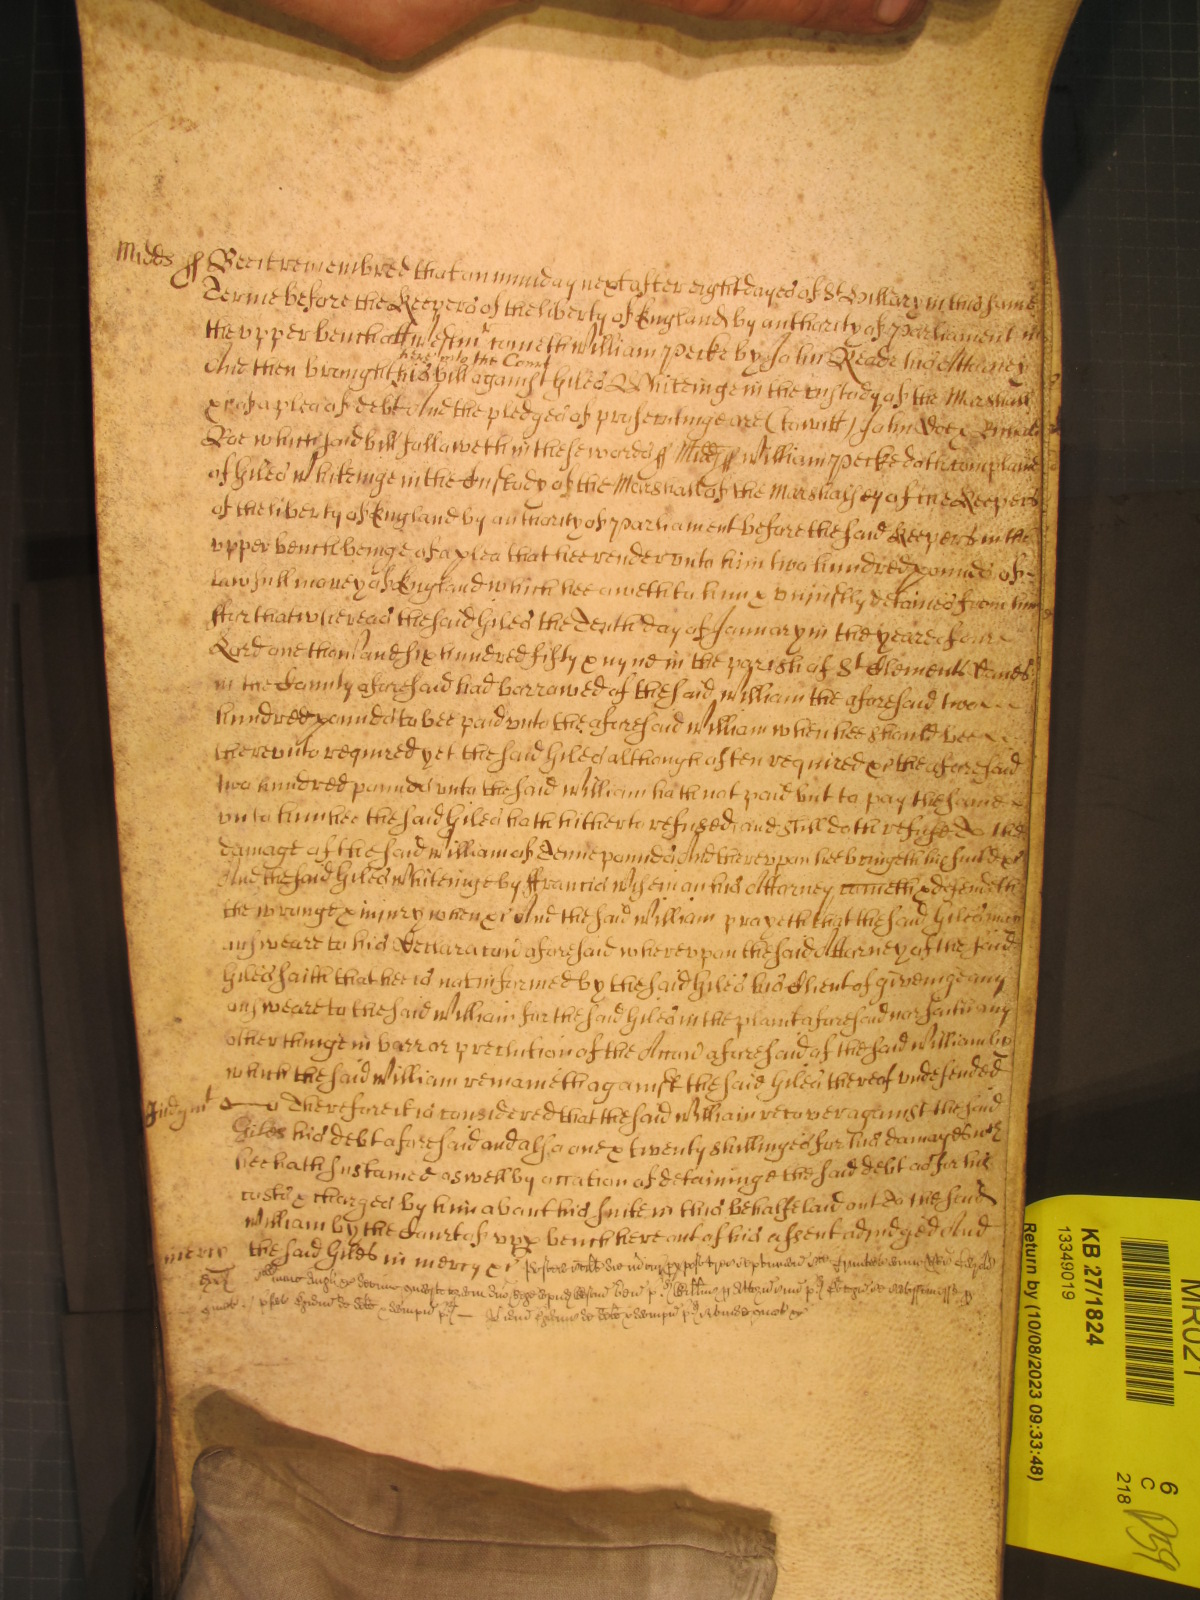 Midds ss Bee it remembred that on munday next after eight dayes of St Hillary in this same
Terme before the Keepers of the liberty of England by authority of Parliament in
the vpper bench att Westmr cometh William Pecke by John Reade his Attorney
here into the Court
And then brought his bill against Giles Whiteinge in the custody of the Marshall
&c of a plea of debt And the pledges of prosecutinge are (to witt) John Doe & Richard
Roe which said bill followeth in these words ss Midd ss William Pecke doth complaine
of Giles Whiteinge in the Custody of the Marshall of the Marshalsey of the Keepers
of the liberty of England by authority of Parliament before the said Keepers in the
vpper bench beinge of a plea that hee render vnto him two hundred pounds of
lawfull money of England which hee oweth to him & vniustly detaines from him
ffor that whereas the said Giles the Tenth day of January in the yeare of our
Lord one thousand six hundred fifty & nyne in the parish of St Clements Danes
in the County aforesaid had borrowed of the said William the aforesaid two
hundred pounds to bee paid vnto the aforesaid William when hee should bee
therevnto required yet the said Giles although often required &c the aforesaid
two hundred pounds vnto the said William hath not paid but to pay the same
vnto him hee the said Giles hath hitherto refused and still doth refuse To the
damage of the said William of Tenne pounds And therevpon hee bringeth his suit &c
And the said Giles Whiteinge by ffrancis Wiseman his Attorney cometh & defendeth
the wronge & iniury when &c And the said William prayeth that the said Giles may
answeare to his Declaracon aforesaid wherevpon the said Attorney of the said
Giles saith that hee is not informed by the said Giles his Client of giveinge any
answeare to the said William for the said Giles in the plaint aforesaid nor saith any
other thinge in barr or preclution of the Accon aforesaid of the said William by
which the said William remaineth against the said Giles thereof vndefended
Judgmt Therefore it is considered that the said William recover against the said
Giles his debt aforesaid and also one & twenty shillinges for his damages wch
hee hath sustained aswell by occation of detaininge the said debt as for his
costs & charges by him about his suite in this behalfe laid out To the said
William by the Court of vpp bench here out of his assent adjudged And
mercy the said Giles in mercy &c